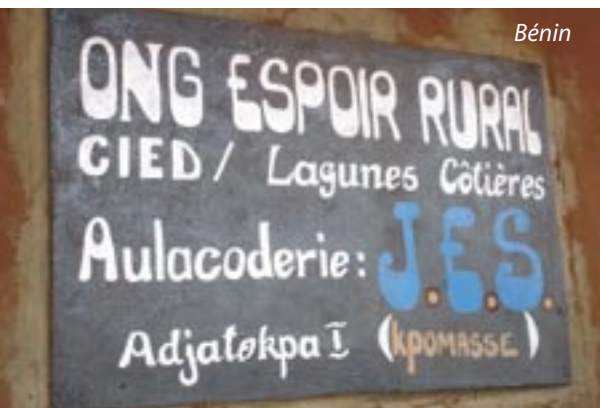 Bénin
ONG ESPOIR RURAL
CIED / Lagunes Côtières
Aulacoderie: J.E.S.
Adjatokpa I (KPOMASSE)